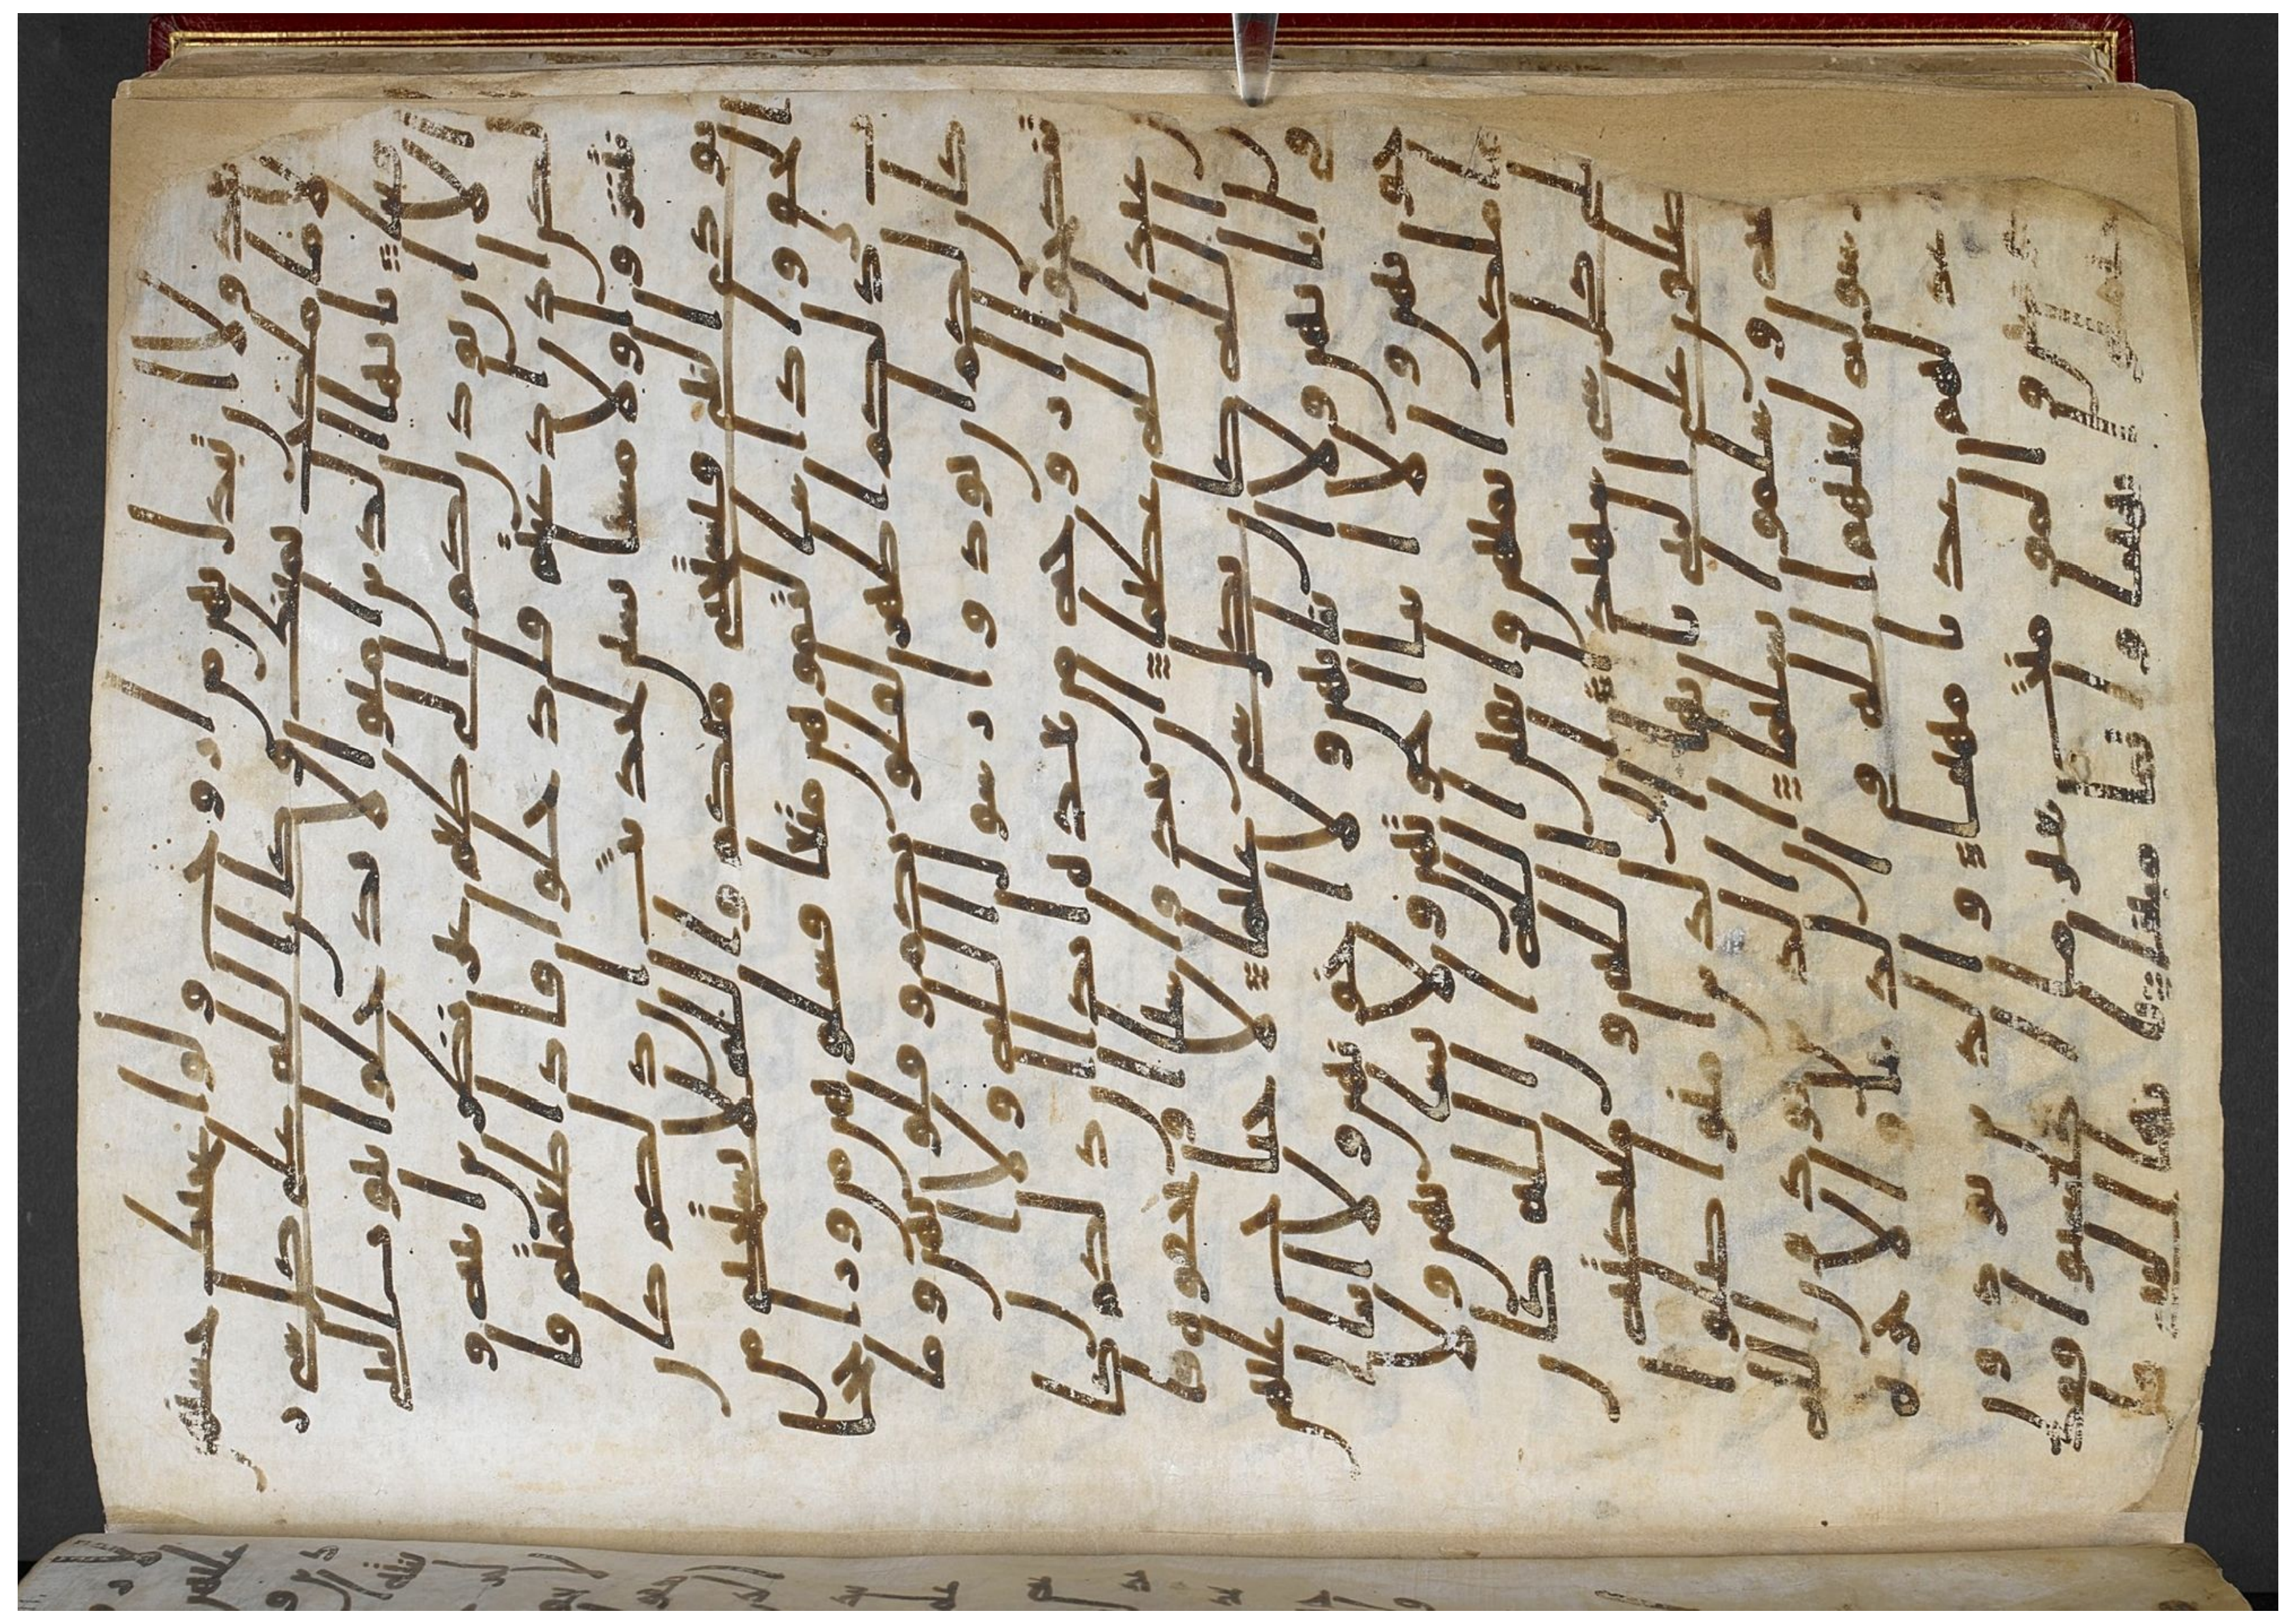 ولا ان تبدل بهن من ازوج ولو اعجبك حسنهن
الا ما ملكت يمينك وكان الله على كل شى ر
قيبا يايها الذين امنوا لا تدخلوا بيوت النبى
الا ان يوذن لكم الى طعم غير نظرين انيه و
لكن اذا دعيتم فادخلوا فاذا طعمتم فا
نتشروا ولا مستنسين لحديث ان ذلكم كان
يوذى النبى فيستحى منكم والله لا يستحى من
الحق واذا سالتموهن متعا فسلوهن من ورا حجا
ب ذلكم اطهر لقلوبكم وقلوبهن وما
كان لكم ان توذوا رسول الله ولا ان
تنكحوا ازوجه من بعده ابدا ان ذلكم كا
ن عند الله عظيما ان تبدوا شيا او تخفوه فا
ن الله كان بكل شى عليما لا جناح عليهن
فى ابايهن ولا ابنايهن ولا اخونهن ولا ابنا
اخونهن ولا ابنا اخوتهن ولا نسايهن ولا
ما ملكت ايمنهن واتقين الله ان الله كا
ن على كل شى شهيدا ان الله وملئكته
يصلون على النبى يايها الذين امنوا صلوا
عليه وسلموا تسليما ان الذين يوذون الله
ورسوله لعنهم الله فى الدنيا والاخره
واعد لهم عذابا مهينا والذين يوذون
المومنين والمومنت بغير ما اكتسبوا فقد
احتملوا بهتنا واثما مبينا يايها النبى قل